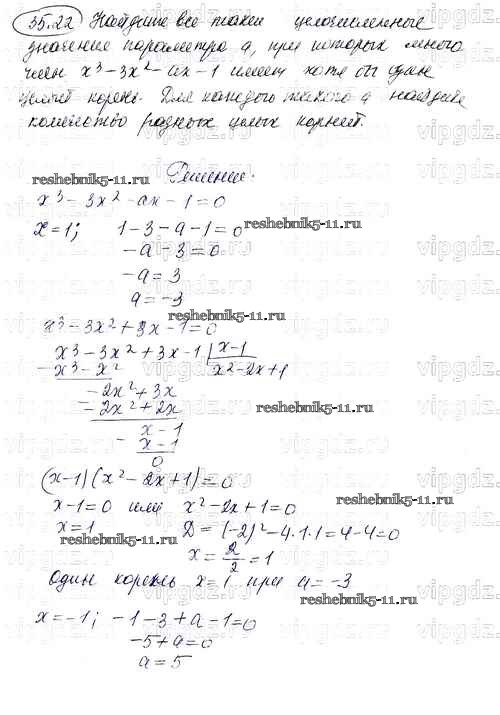 35.22 Найдите все такие целочисленные
значение параметра a, при которых много
член x³-3x²-ax-1 имеет хотя бы один
целый корень. Для каждого такого a найдите
количество разных целых корней.
Решение.
reshebnik5-11.ru
x³-3x²-ax-1=0
reshebnik5-11.ru
x=1; 1-3-a-1=0
-a-3=0
-a=3
a=-3
reshebnik5-11.ru
x³-3x²+3x-1=0
x³-3x²+3x-1 | x-1
- x³-x² x²-2x+1
-2x²+3x
- -2x²+2x
reshebnik5-11.ru
x-1
- x-1
0
(x-1)(x²-2x+1)=0
reshebnik5-11.ru
x-1=0 или x²-2x+1=0
x=1 D=(-2)²-4·1·1=4-4=0
reshebnik5-11.ru
x=2/2=1
Один корень x=1 при a=-3
reshebnik5-11.ru
x=-1; -1-3+a-1=0
-5+a=0
a=5
vipgdz.ru